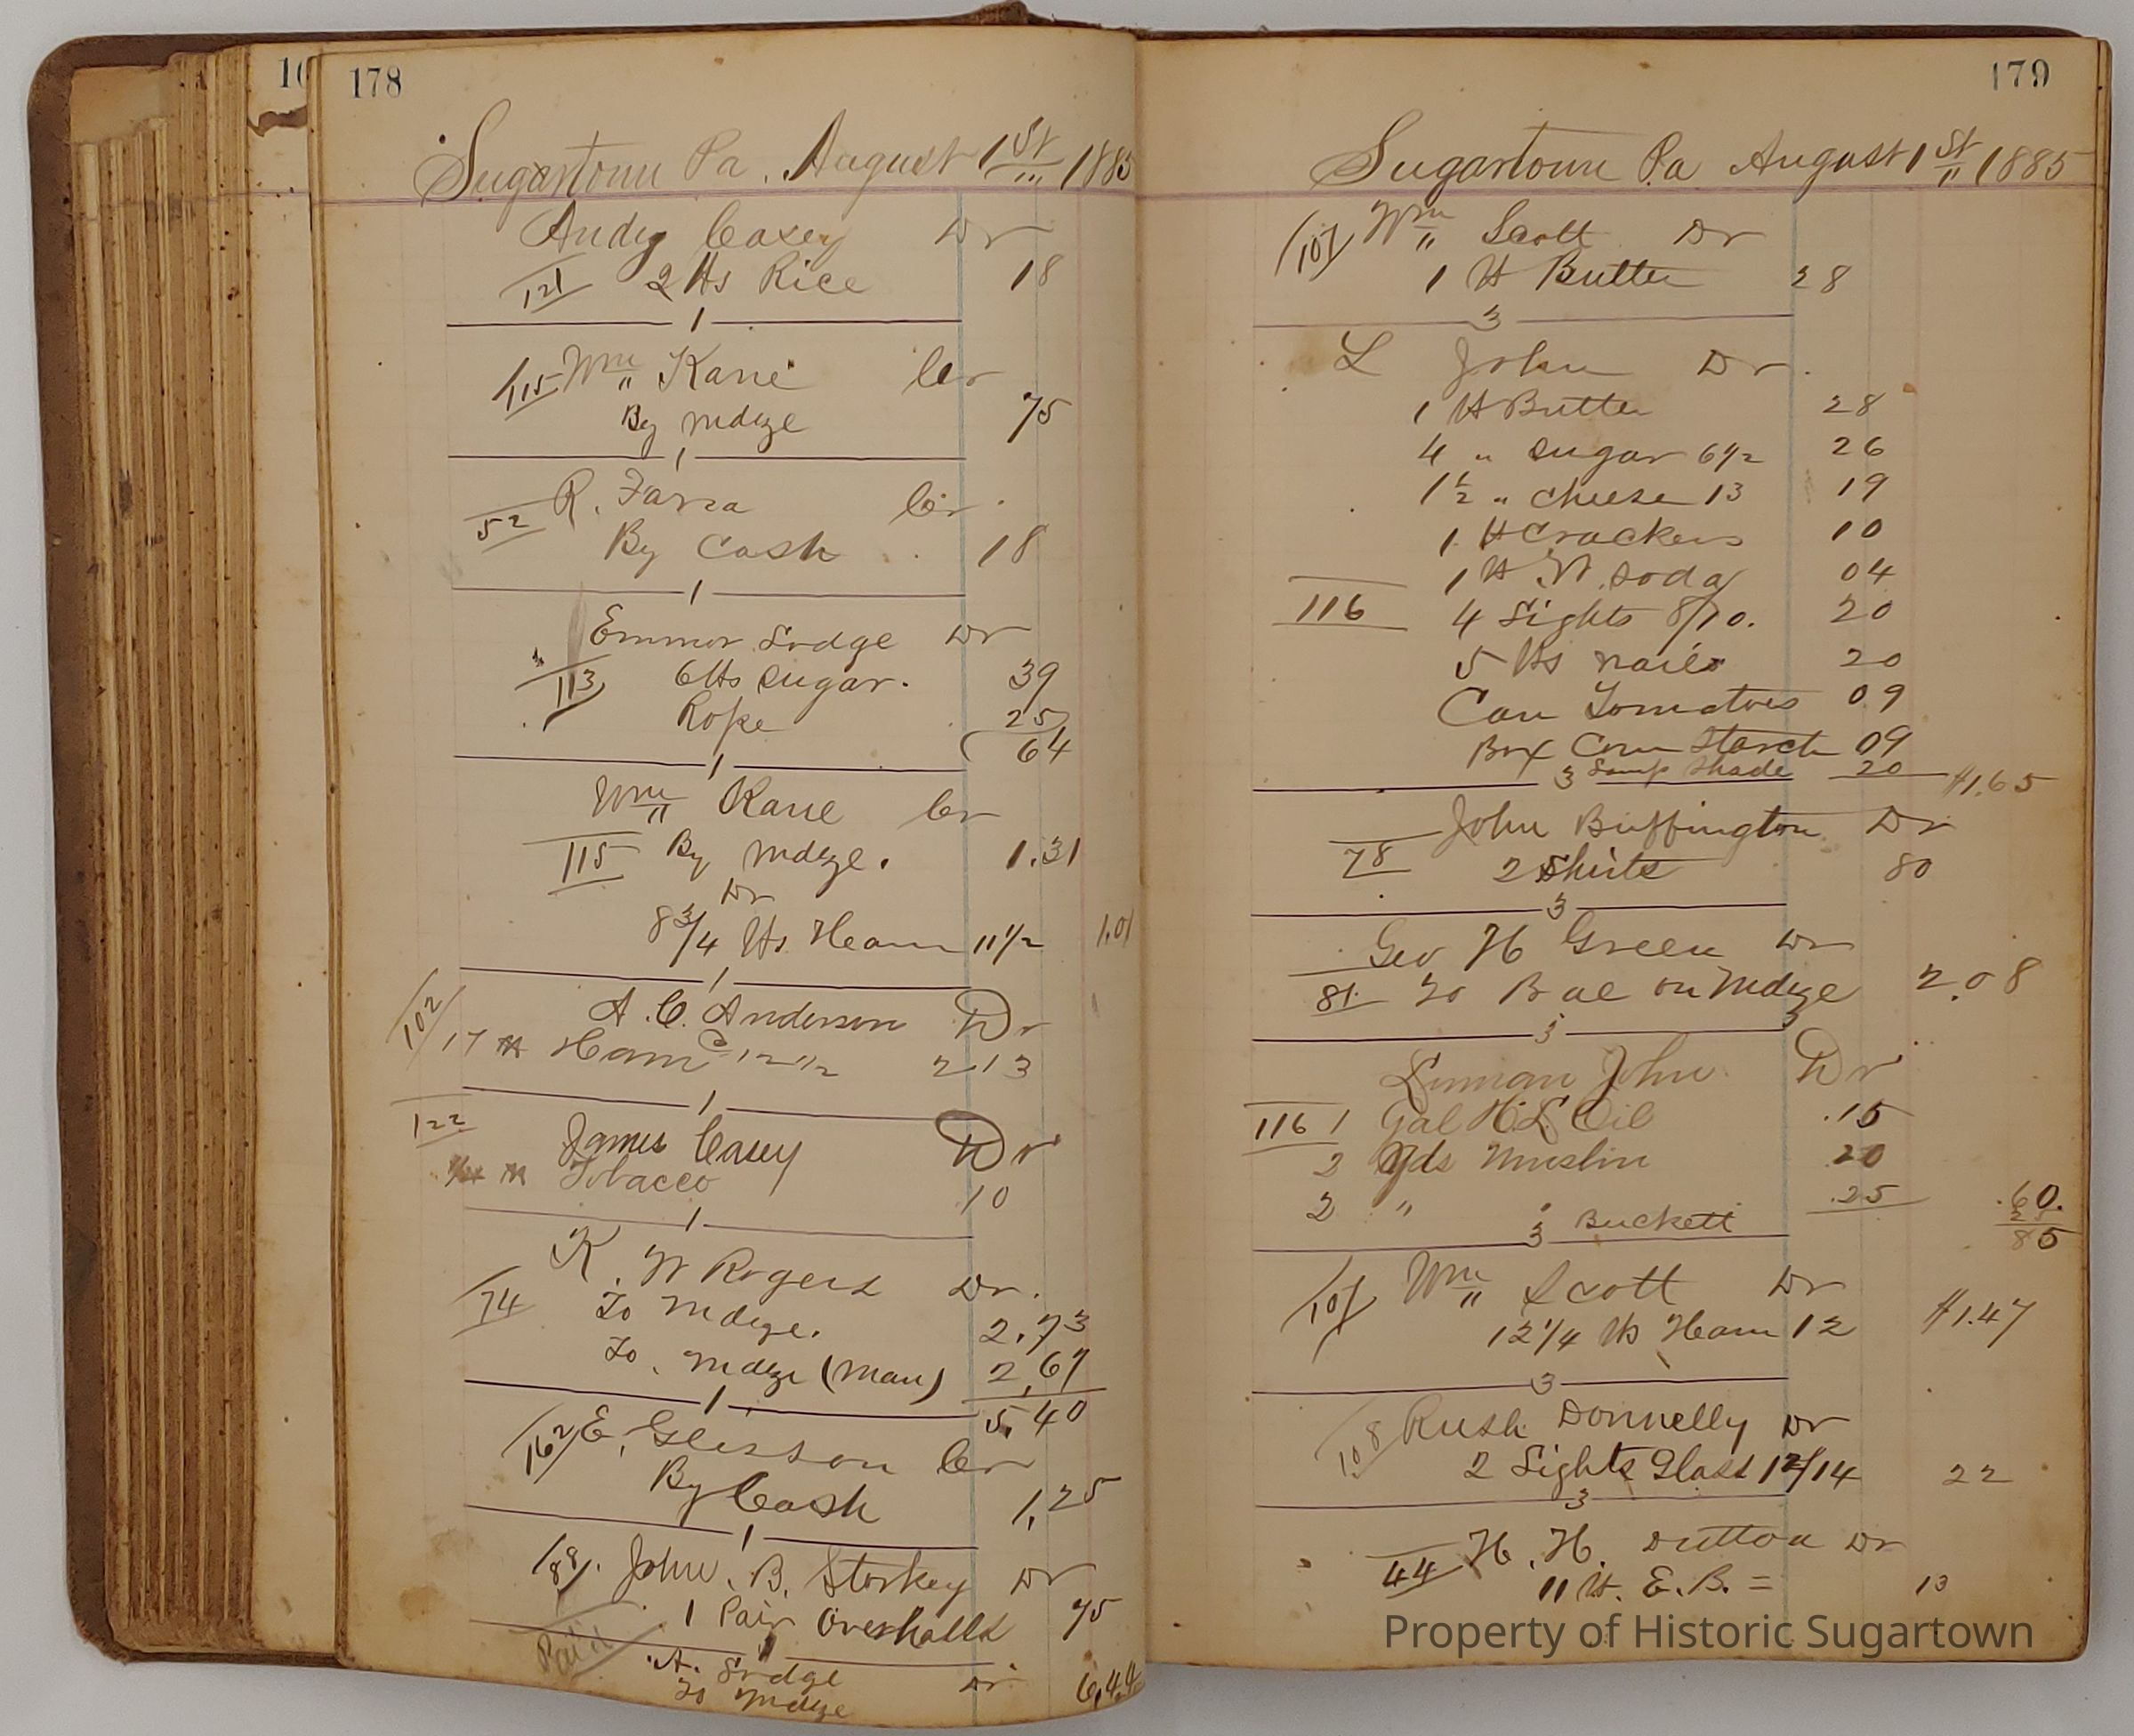 178
Sugartown Pa. August 1st 1885
Andy Casey Dr
121 2 lbs Rice 18
1
115 Wm Kane Cr
By Mdze 75
1
52 R. Farra Cr.
By Cash 18
1
Emmor Lodge Dr
113 6 lbs Sugar. 39
Rope 25
64
1
Wm Kane Cr
115 By Mdze. 1.31
Dr
8 3/4 lbs Ham 11 1/2 1.01
1
102 A. C. Anderson Dr
17 lb Ham @ 12 1/2 2 13
1
122 James Casey Dr
1/4 lb Tobacco 10
1
K. W Rogers Dr.
74 To Mdze. 2.73
To. Mdze (Man) 2.67
1 5.40
162 E. Glisson Cr
By Cash 1.25
1
88. John. B. Storkey Dr
1 Pair Overhalls 75
1
Paid A. Lodge Dr 6.44
To Mdze
179
Sugartown Pa August 1st 1885
107 Wm Scott Dr
1 lb Butter 28
3
L John Dr.
1 lb Butter 28
4 " Sugar 6 1/2 26
1 1/2 " Cheese 13 19
1 lb Crackers 10
1 lb W. Soda 04
116 4 Lights 8/10. 20
5 lbs nails 20
Can Tomatoes 09
Box Corn Starch 09
3 Lamp Shade 20 $1.65
John Buffington Dr
78 2 Shirts 80
3
Geo H Green Dr
81. To Bal on Mdze 2.08
3
Linman John Dr
116 1 Gal H.L. Oil .15
2 Yds Muslin 20
2 " " .25 .60.
3 Buckett 25
85
107 Wm Scott Dr
12 1/4 lbs Ham 12 $1.47
3
108 Rush Donnelly Dr
2 Lights Glass 12/14 22
3
44 H. H. Dutton Dr
11 lb. E. B. = 13
Property of Historic Sugartown